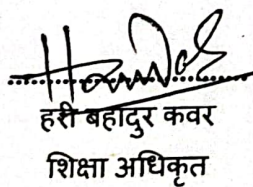 हरी बहादुर कवर
शिक्षा अधिकृत